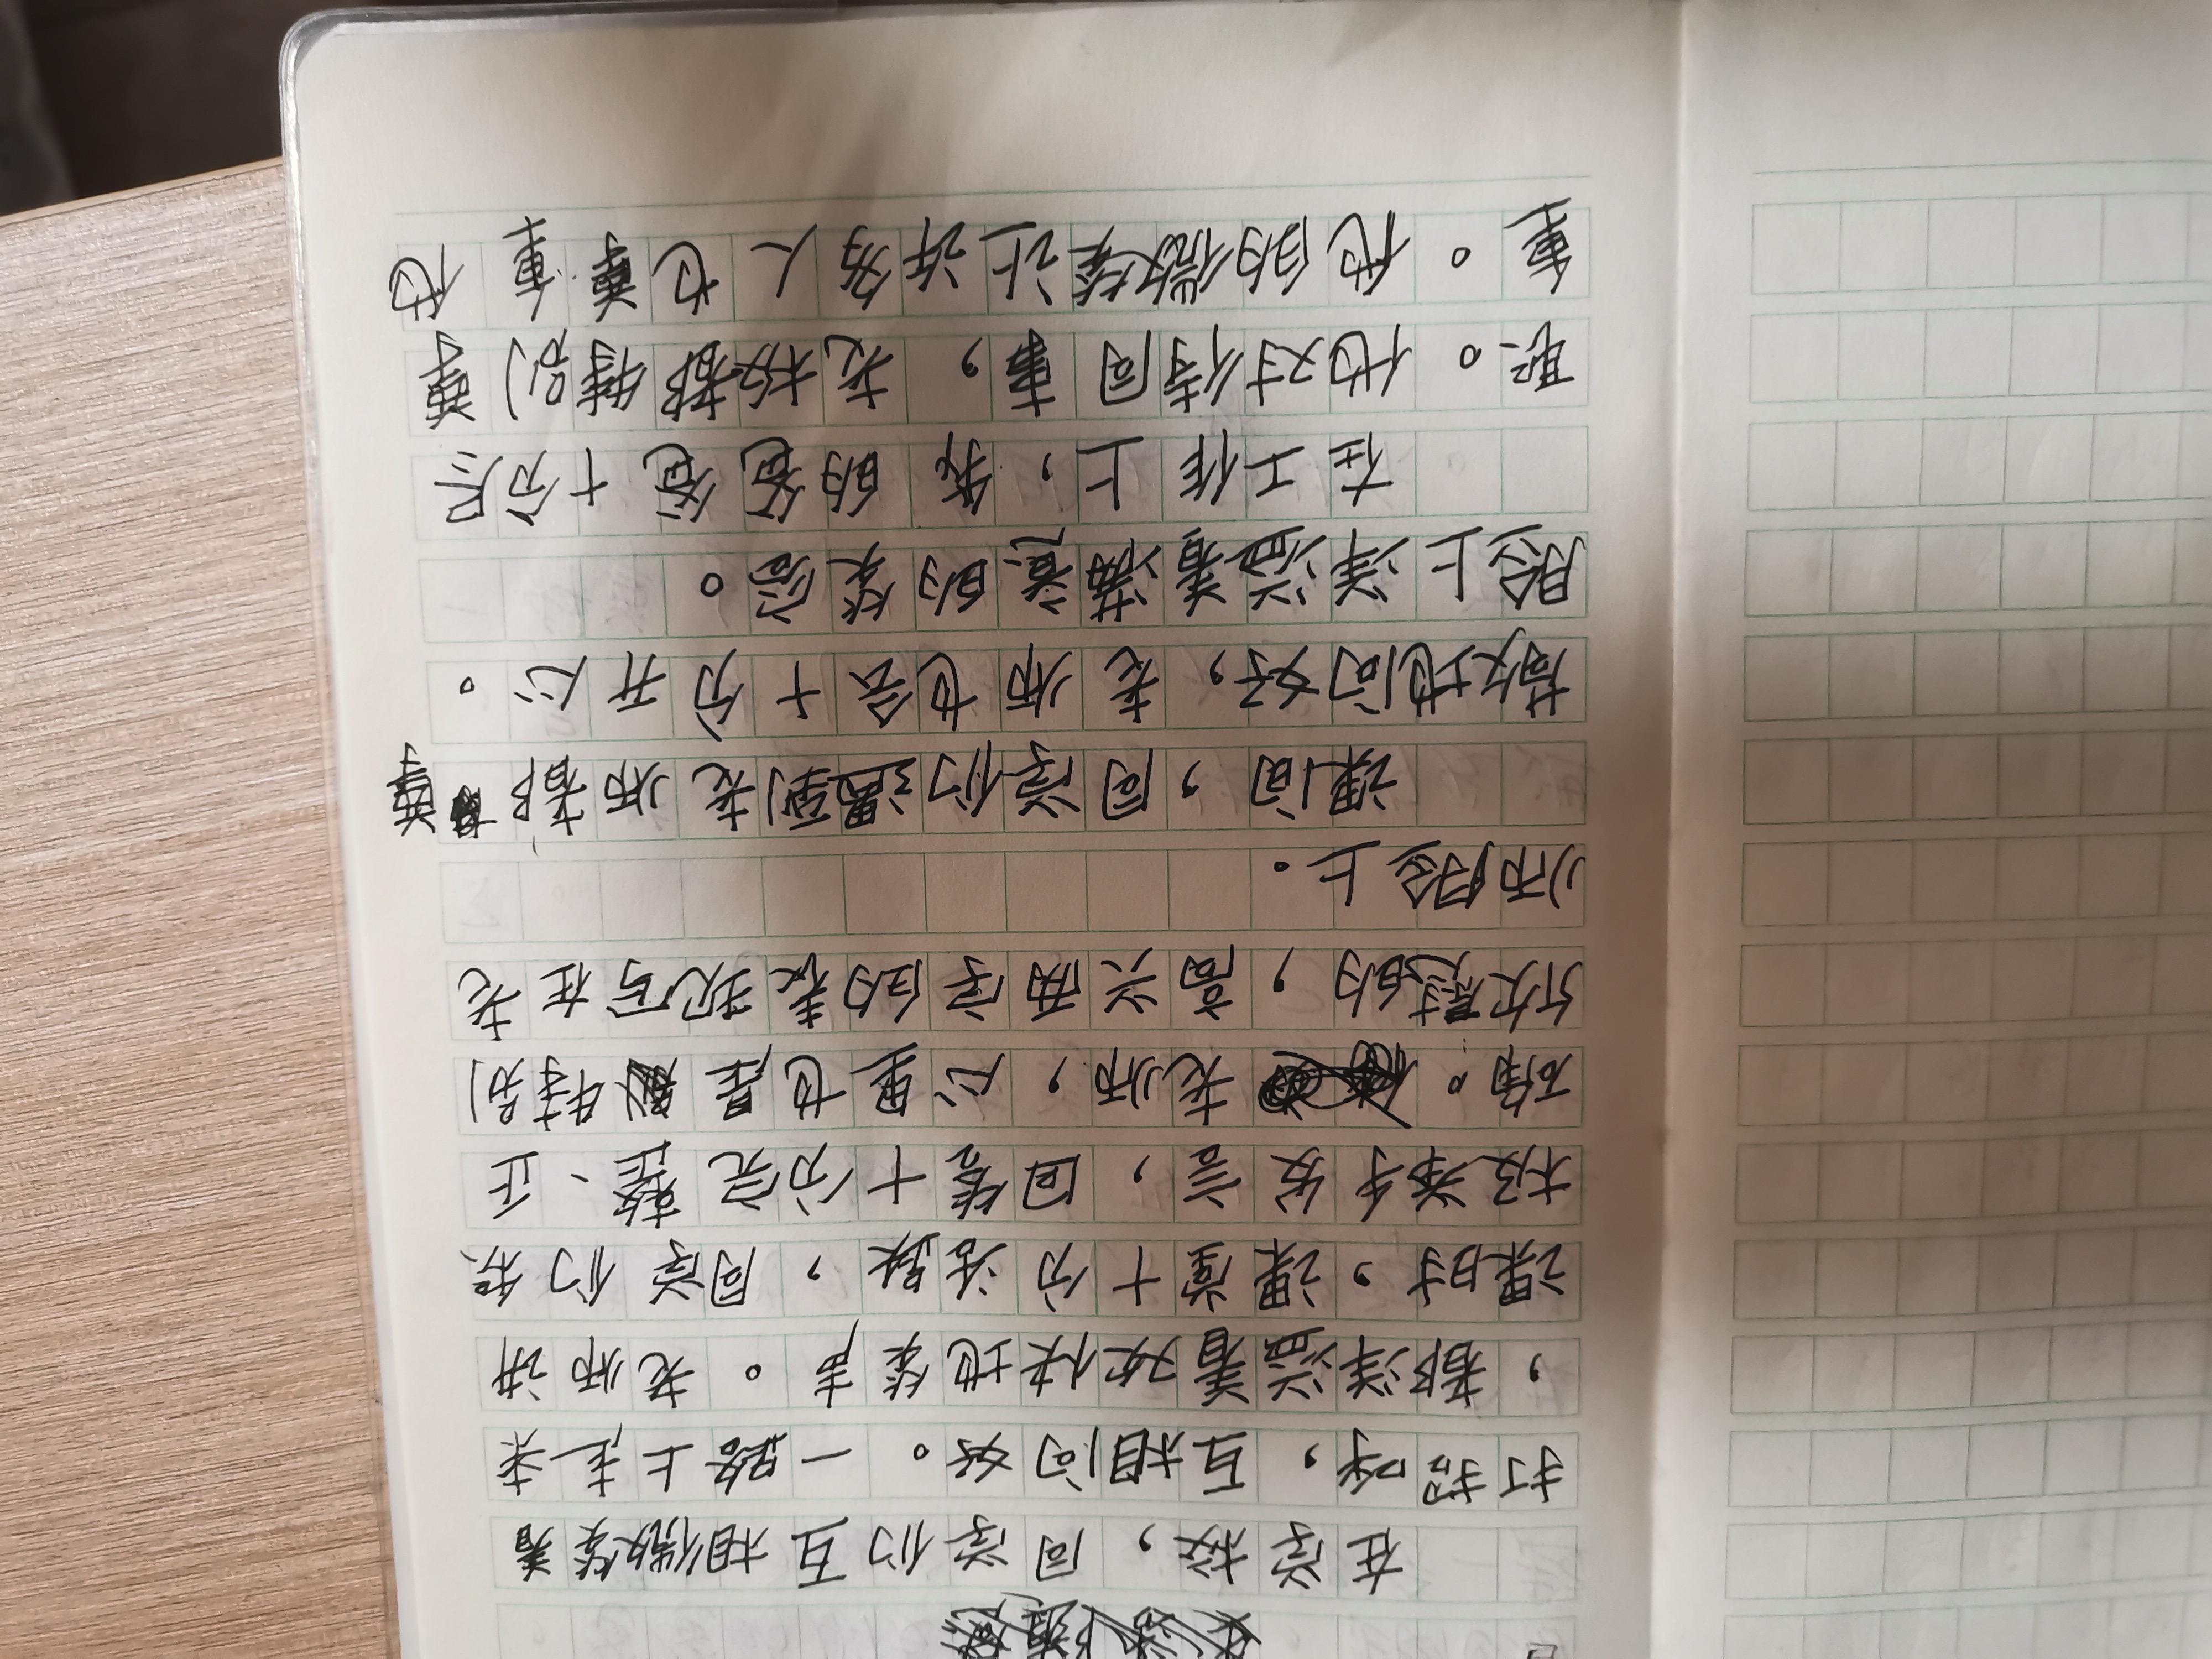 在学校，同学们互相微笑着
打招呼，互相问好。一路上走来
，都洋溢着欢快地笑声。老师讲
课时，课堂十分活跃，同学们积
极举手发言，回答十分完整、正
确。老师，心里也是特别
欣慰的，高兴两字的表现写在老
师脸上。
课间，同学们遇到老师都尊
敬地问好，老师也会十分开心。
脸上洋溢着满意的笑容。
在工作上，我的爸爸十分尽
职。他对待同事，老板都特别尊
重。他的微笑让许多人也尊重他